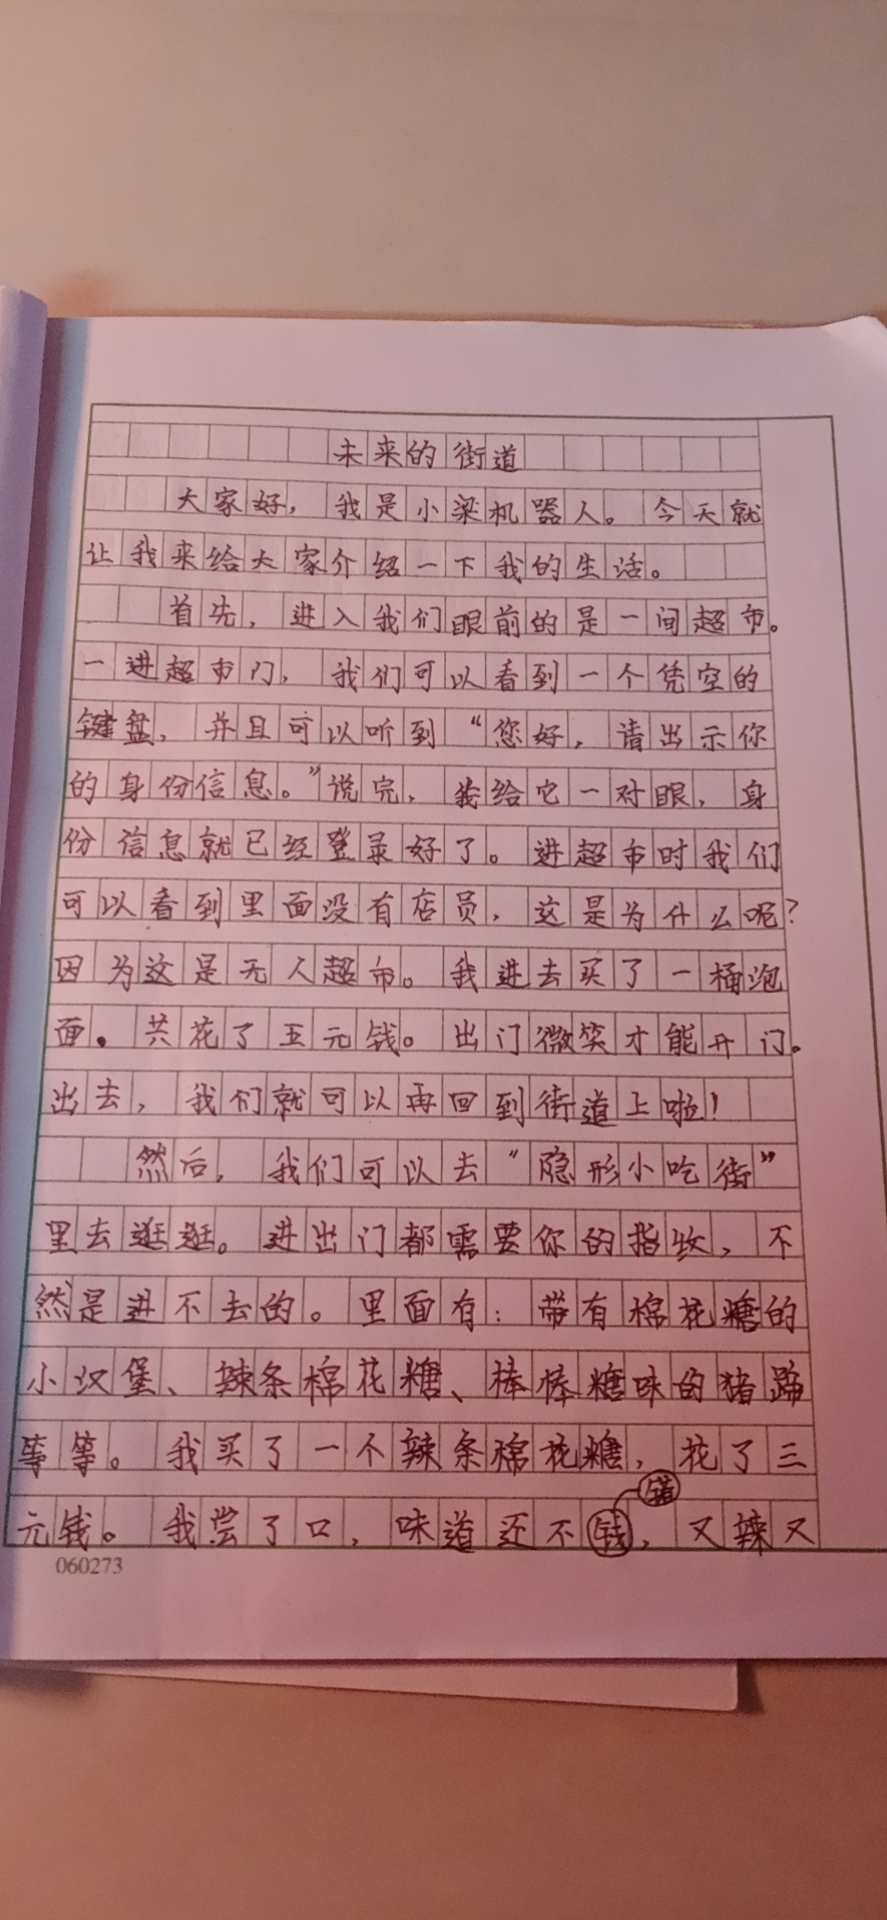 未来的街道
大家好，我是小梁机器人。今天就
让我来给大家介绍一下我的生活。
首先，进入我们眼前的是一间超市。
一进超市门，我们可以看到一个凭空的
键盘，并且可以听到“您好，请出示你
的身份信息。”说完，我给它一对眼，身
份信息就已经登录好了。进超市时我们
可以看到里面没有店员，这是为什么呢？
因为这是无人超市。我进去买了一桶泡
面。共花了五元钱。出门微笑才能开门。
出去，我们就可以再回到街道上啦！
然后，我们可以去“隐形小吃街”
里去逛逛。进出门都需要你的指纹，不
然是进不去的。里面有：带有棉花糖的
小汉堡、辣条棉花糖、棒棒糖味的猪蹄
等等。我买了一个辣条棉花糖，花了三
错
元钱。我尝了口，味道还不钱，又辣又
060273